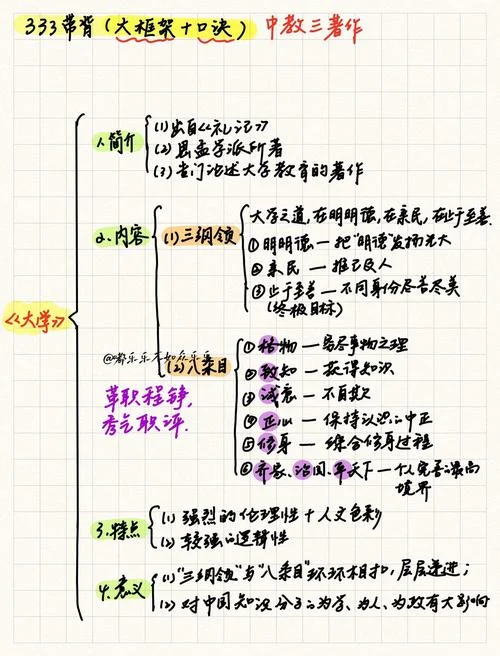 333带背（大框架+口诀） 中教三著作
《大学》
1.简介
(1) 出自《礼记》
(2) 思孟学派所著
(3) 专门论述大学教育的著作
2.内容
(1)三纲领
大学之道,在明明德,在亲民,在止于至善.
① 明明德—把"明德"发扬光大
② 亲民 — 推己及人
③ 止于至善 — 不同身份尽善尽美
(终极目标)
(2)八条目
① 格物 — 穷尽事物之理
② 致知 — 获得知识
③ 诚意 — 不自欺
④ 正心 — 保持认识的中正
⑤ 修身 — 综合修身过程
⑥ 齐家、治国、平天下 — 个人完善的最高
境界
革职程铮,
秀气职评.
3.特点
(1) 强烈的伦理性+人文色彩
(2) 较强的逻辑性
4.意义
(1)"三纲领"与"八条目"环环相扣,层层递进;
(2) 对中国知识分子的为学、为人、为政有大影响